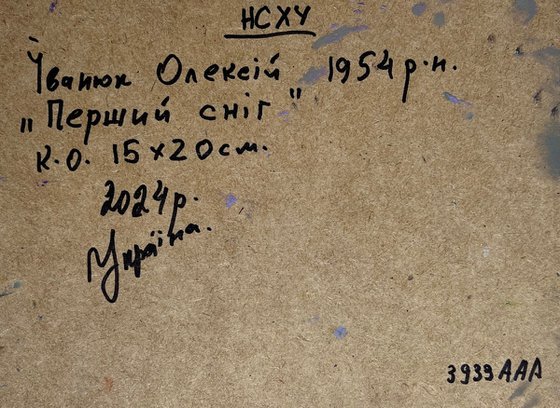 НСХУ
Іванюк Олексій 1954 р.н.
„Перший сніг"
к.о. 15х20см.
2024р.
Україна.
3939ААА